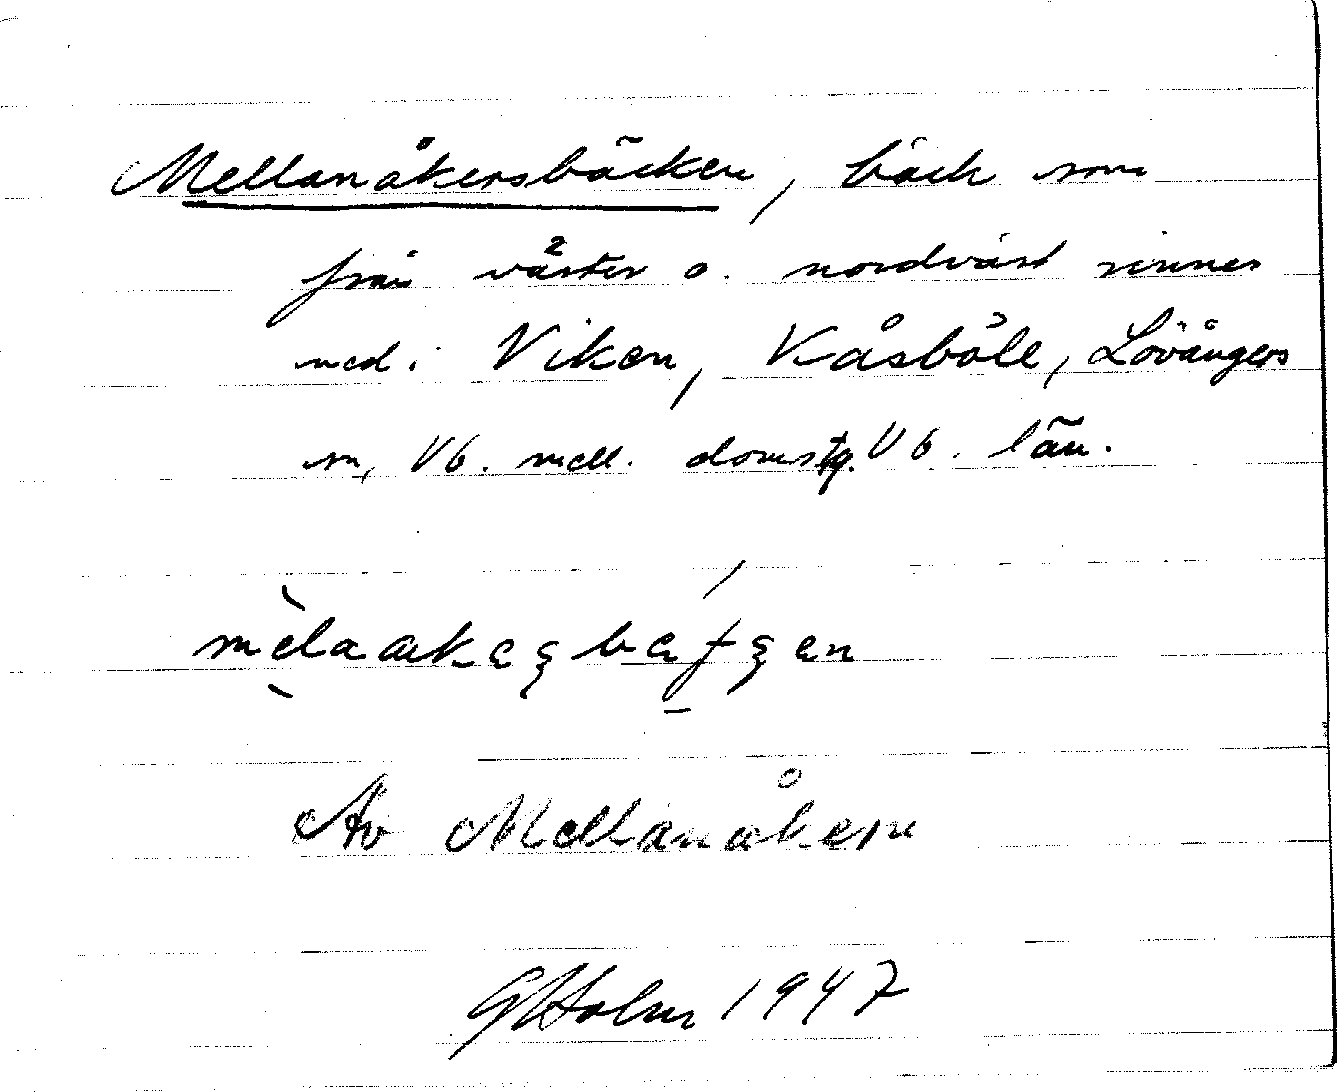 Mellanåkersbäcken, bäck som
från väster o. nordväst rinner
ned i Viken, Kåsböle, Lövångers
sn, Vb. mell. domstg. Vb. län.
Av Mellanåkern
GHolm 1947